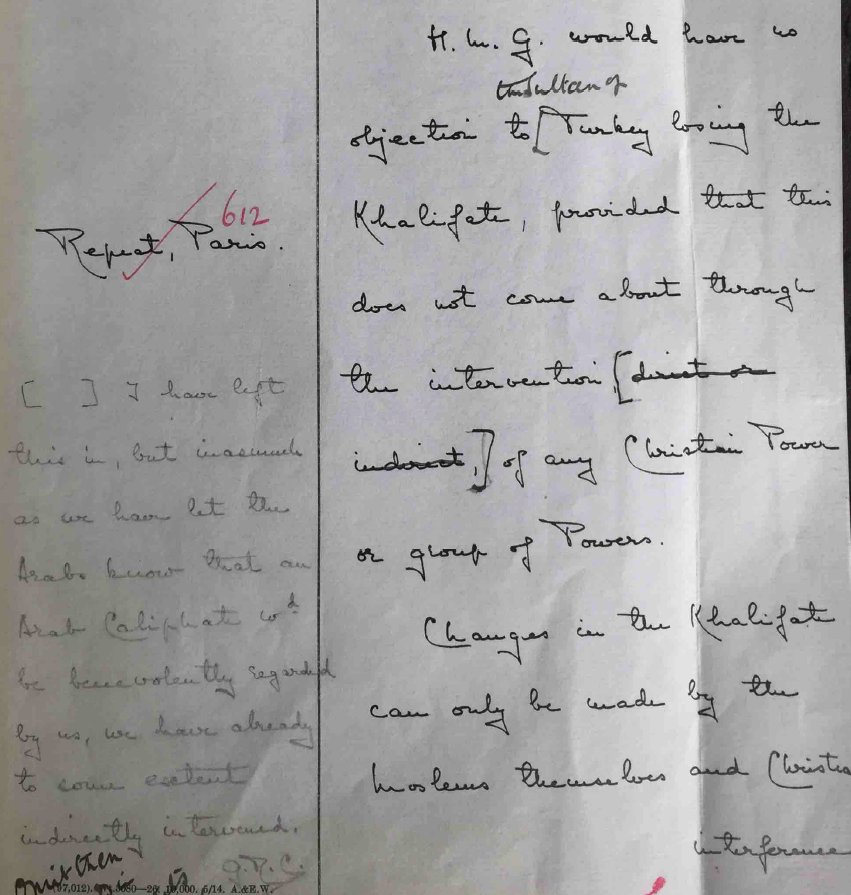 H. M. G. would have no
the Sultan of
objection to [Turkey losing the
Khalifate, provided that this
does not come about through
the intervention, [direct or
indirect,] of any Christian Power
or group of Powers.
Changes in the Khalifate
can only be made by the
Moslems themselves and Christia
interference
612
Repeat, Paris.
[ ] I have left
this in, but inasmuch
as we have let the
Arabs know that an
Arab Caliphate wd
be benevolently regarded
by us, we have already
to some extent
indirectly intervened.
G.R.C.
omit then
5/14. A.&E.W.